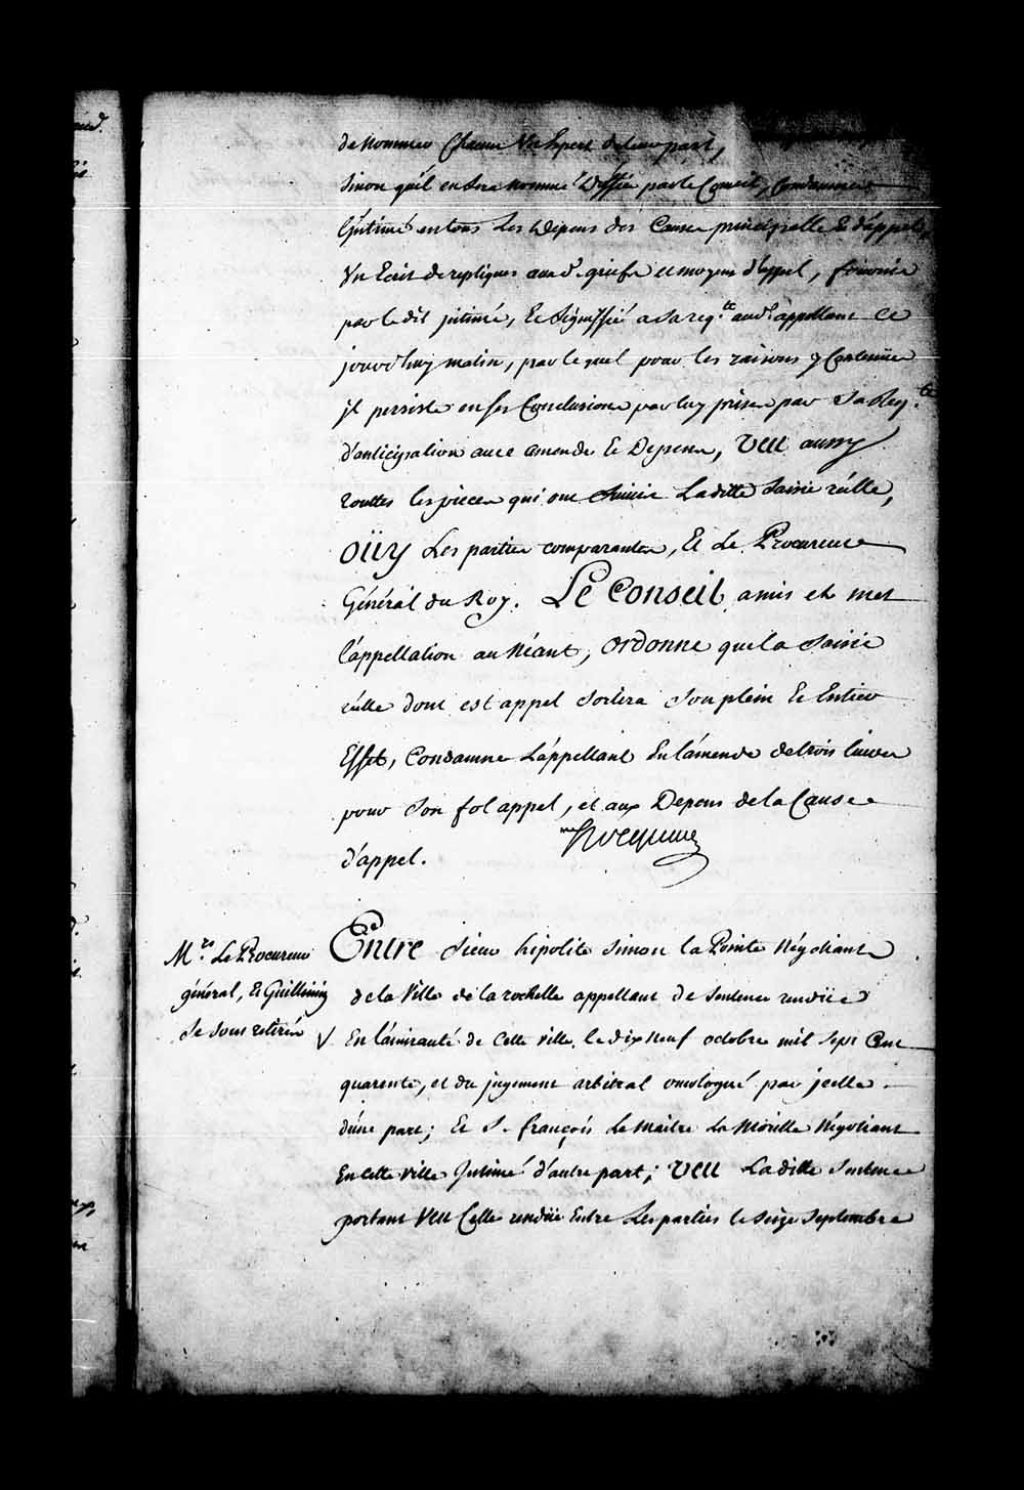 de nommer Chacun Un Expert de leur part,
Sinon qu'il en Sera nommé d'office par le Conseil, Condamner
L'Intimé en tous Les Depens des Cause principalle & d'appel,
Un Ecrit de repliques aux d. griefs et moyens d'appel, fournie
par le dit jntimé, Et Signiffié a Sa req.te aud. appellant Ce
jourd'huy matin, par lequel pour les raisons y Contenües
jl persiste en ses Conclusions par luy prises par Sa Req.te
d'anticipation avec amende Et Depens, VEU aussy
touttes les pieces qui ont Suivie Laditte Saisie réélle,
OÜY Les parties comparantes, Et Le Procureur
Général du Roy. Le Conseil a mis et met
l'appellation au Néant, ordonne que la Saisie
réélle dont est appel Sortira Son plein Et Entier
Effet, Condamne L'appellant En l'amende de trois livres
pour Son fol appel, et aux Depens de la Cause
d'appel.
Hocquart
M.rs Le Procureur
général, & Guillimin
Se Sont retirés
Entre Sieur hipolite Simon la Pointe Négotiant
de la Ville de la rochelle appellant de Sentence rendüe
En l'amirauté de Cette ville, le dix Neuf octobre mil Sept Cent
quarente, et du jugement arbitral omologué par jcelle
d'une part; Et S. françois Le Maitre La Morille Négotiant
En Cette ville Intimé d'autre part; VEU Laditte Sentence
portant Veu Celle rendüe Entre Les parties le Seize Septembre